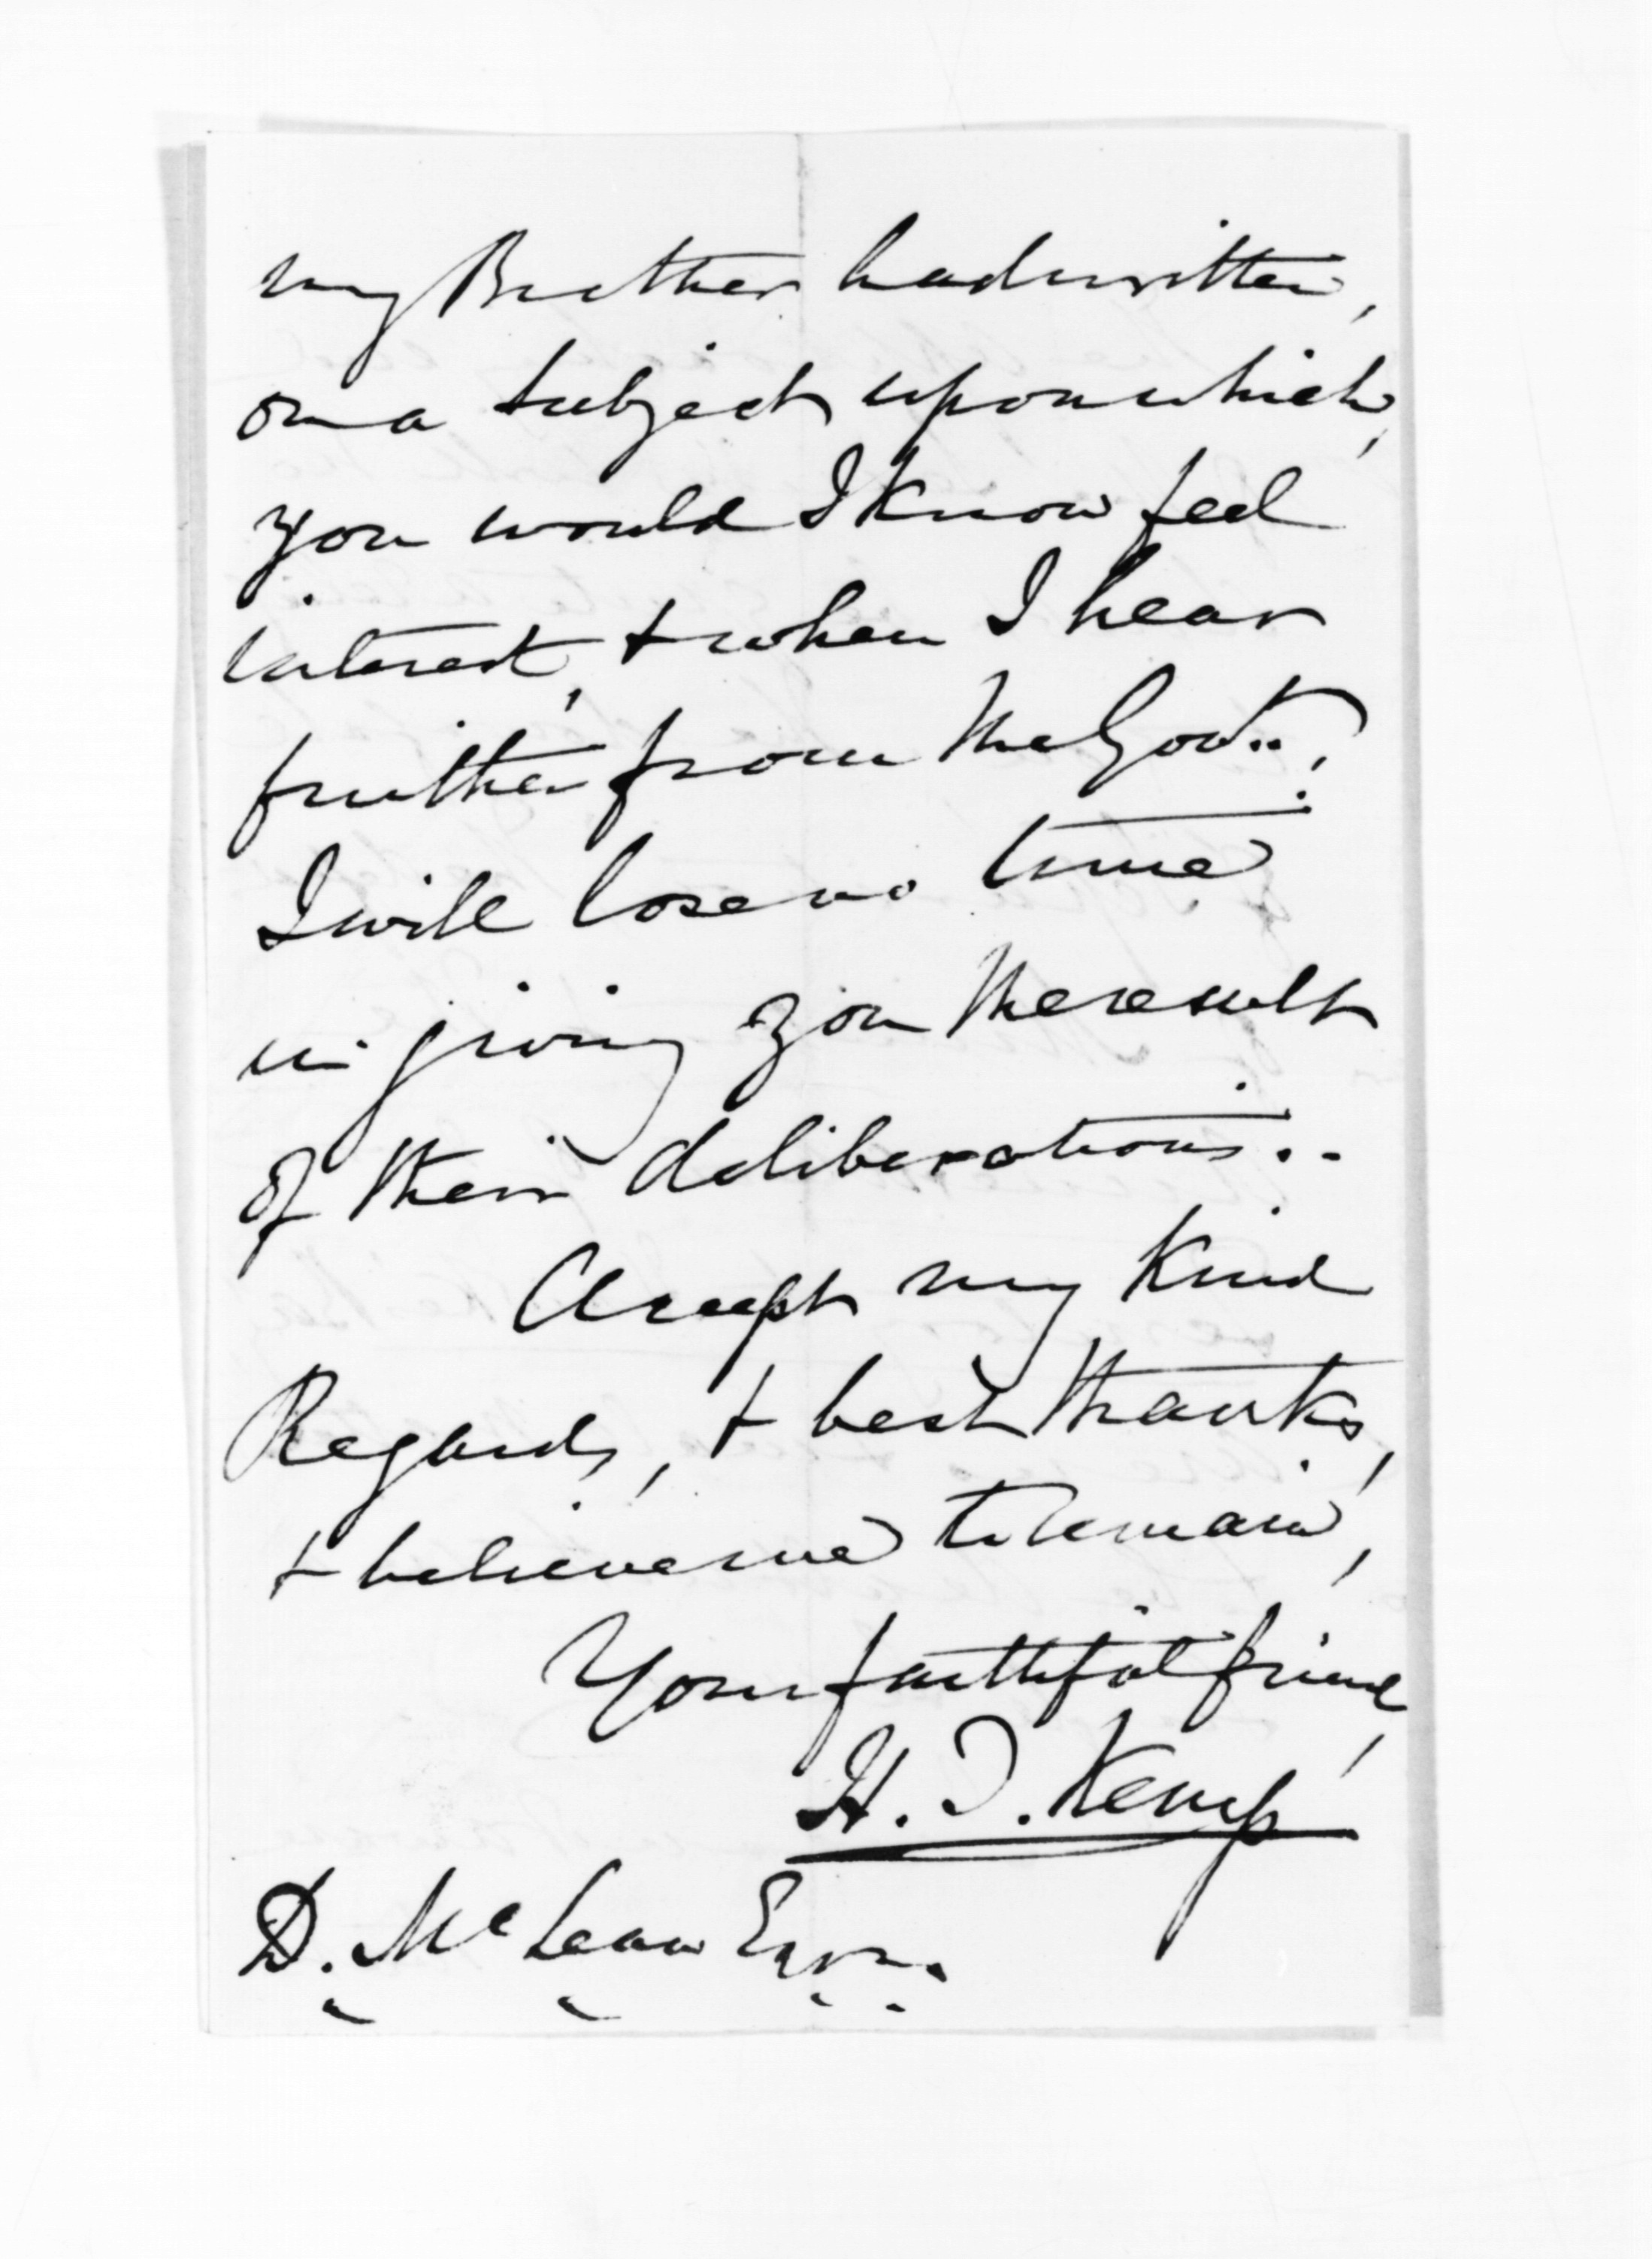 my Brother had written,
on a subject upon which,
you would I know feel
interest, & when I hear
further from the Govt.,
I will lose no time
in giving you the result
of their deliberations..
Accept my kind
Regards, & best thanks,
& believe me to remain,
Your faithful friend,
H. T. Kemp
D. McLean Esqre.